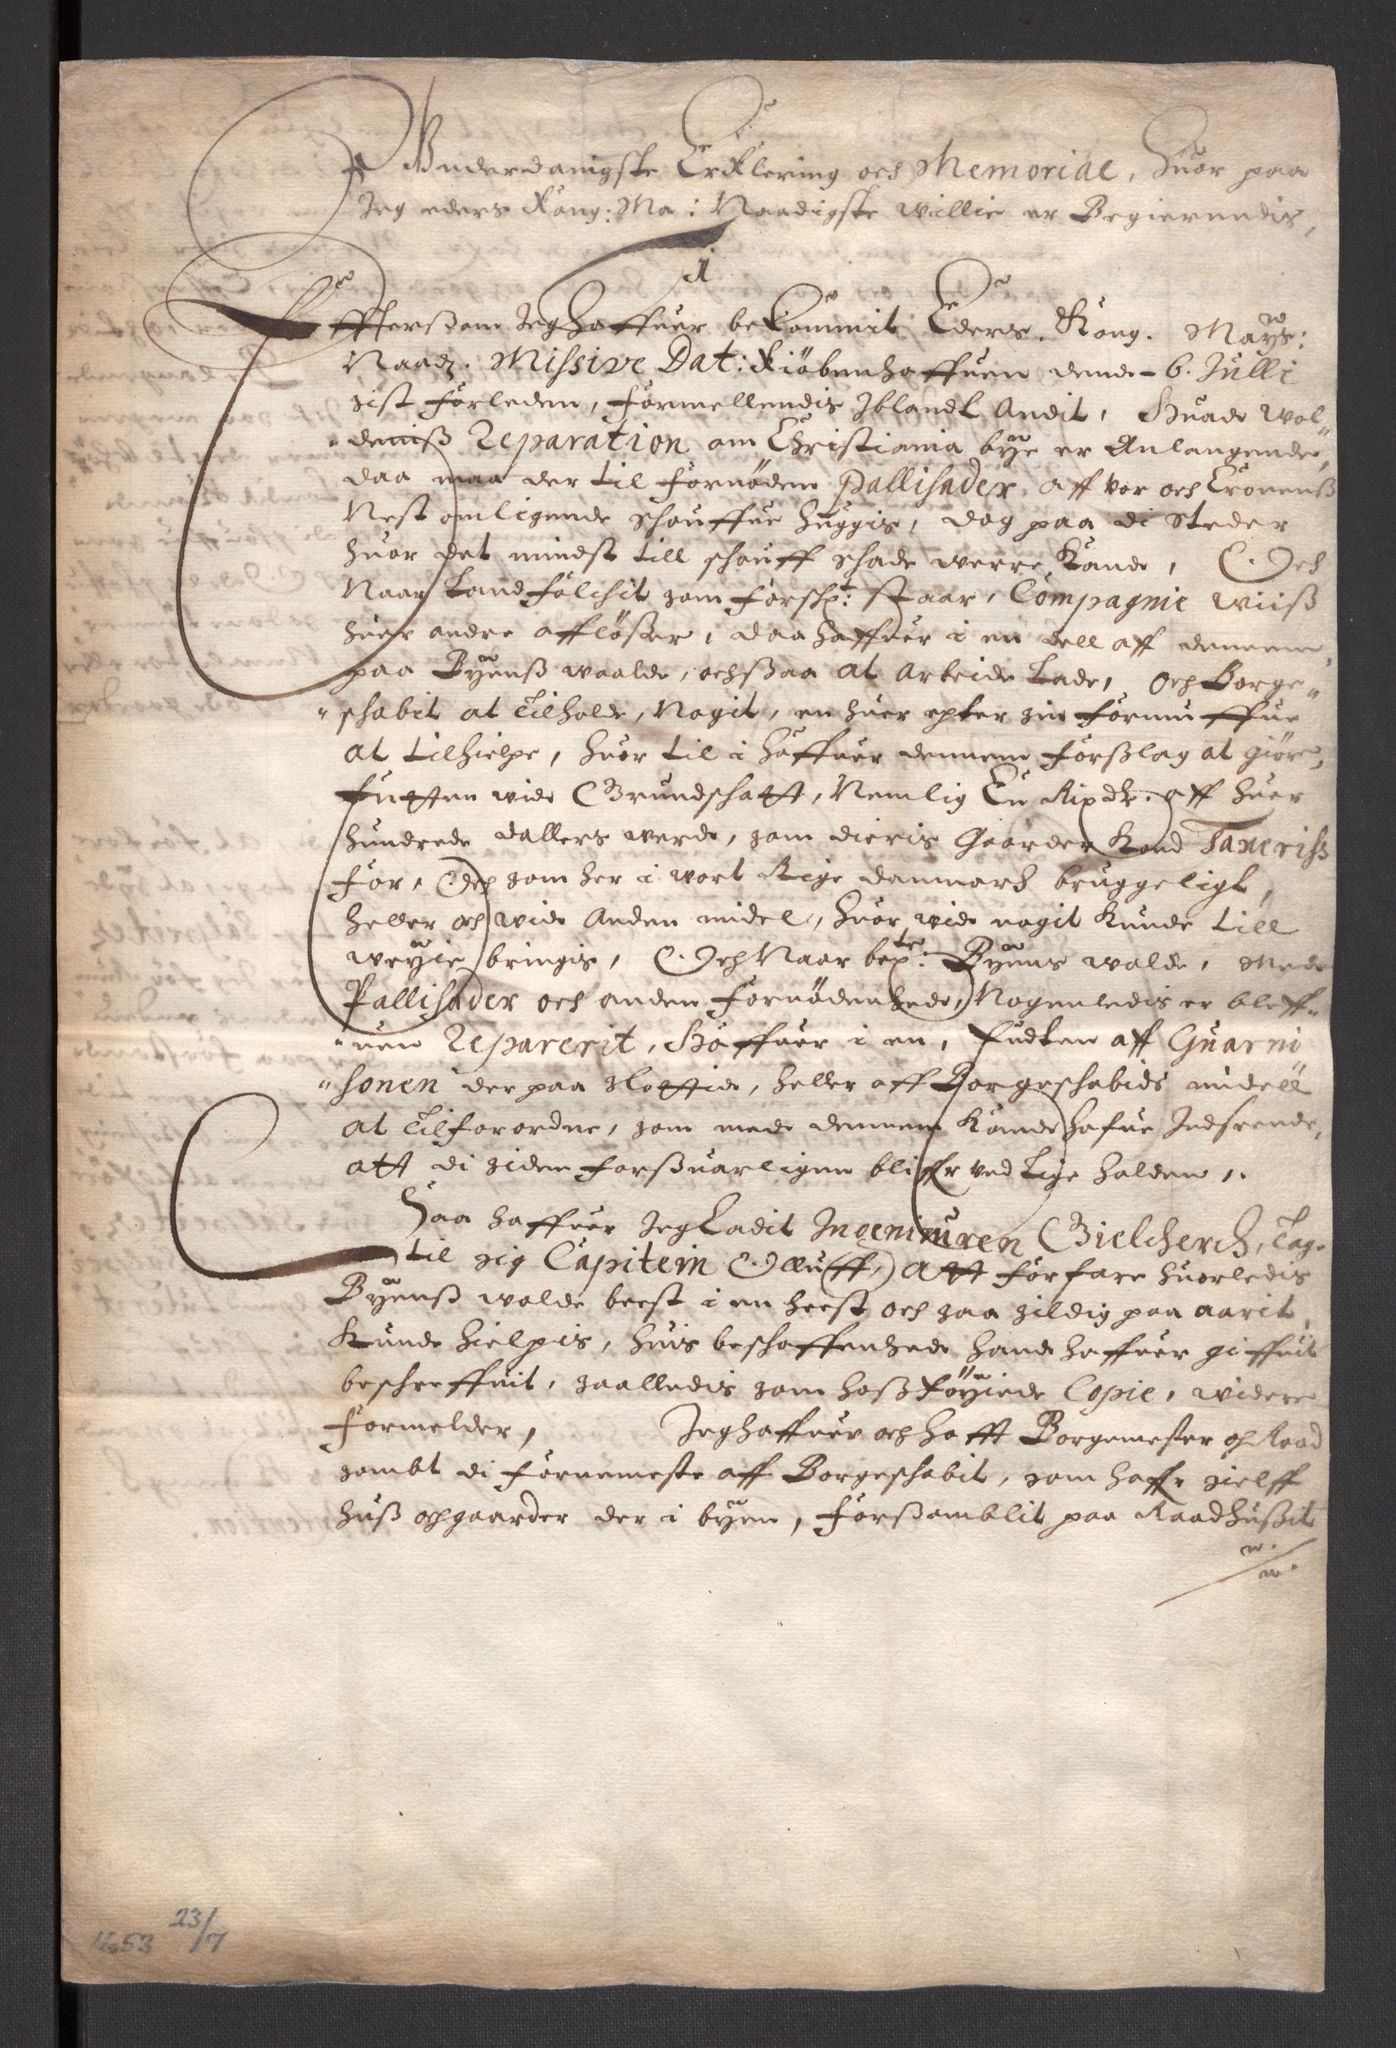 Vnderdanigste Erklering och Memorial, huor paa
Jeg eders Kong: Ma: Naadigste willie er Begierendis,
1
Effterßom Jeg haffuer bekommit Eders. Kong. Mays:
Naadz. Missive Dat: Kiøbenhaffuen dend 6. Julli
sist forleden, formellendis Iblandt Andit, Huad wol„
„denniß Reparation om Christiania bye er Anlangende,
daa maa der til fornøden Pallisader, aff vor och Cronenß
Nest omligende schouffue huggis, dog paa di steder
huor det mindst till schouff schade werre Kande, Och
Naar Landfolchit som forschr: staar, Compagnie wiiß
huer andre affløßer, daa haffuer i en dell aff dennem,
paa Byenß waalde, ochßaa at arbeide Lade, Och Borge„
„schabit at tilholde, Nogit, en huer epter sin formuffue
at tilhielpe, huor til i haffuer dennem forßlag at giøre,
Entten wide Grundschatt, Nemlig En Rixdr. aff huer
hundrede dallers werde, som dieris Gaarder Kand Taxeriß
for, Och som her i wort Rige danmarch bruggeligt,
heller och wide Anden midel, huor wide nogit Kunde till
weyie bringis, Och Naar bete: Byens wolde, Med
Pallisader och anden fornødenhed, Nogenledis er bleff„
„uen Reparerit, Haffuer i en, Endten aff Guarni
„sonen der paa slottid, heller aff Borgeschabids midell
at tilforordne, som med dennem Kunde hafue Indseende,
att di siden forßuarligen bliffr ved Lige holden,.
Saa haffuer Jeg Ladit Ingeniuren Gielcherch, tag.
til sig Capitein Olluff, Att forfare huorledis
Byenß wolde beest i en heest och saa sildig paa aarit
Kunde hielpis, huis beschaffenhed hand haffuer giffuit
beschreffuit, saalledis som hoßføyiede Copie, widere
formelder, Jeg haffuer och hafft Borgemester oh Raad
sambt di fornemeste aff Borgeschabit, som haffr sielff
huß oh gaarder der i byen, forßamblit paa Raadhußit
1653 23/7